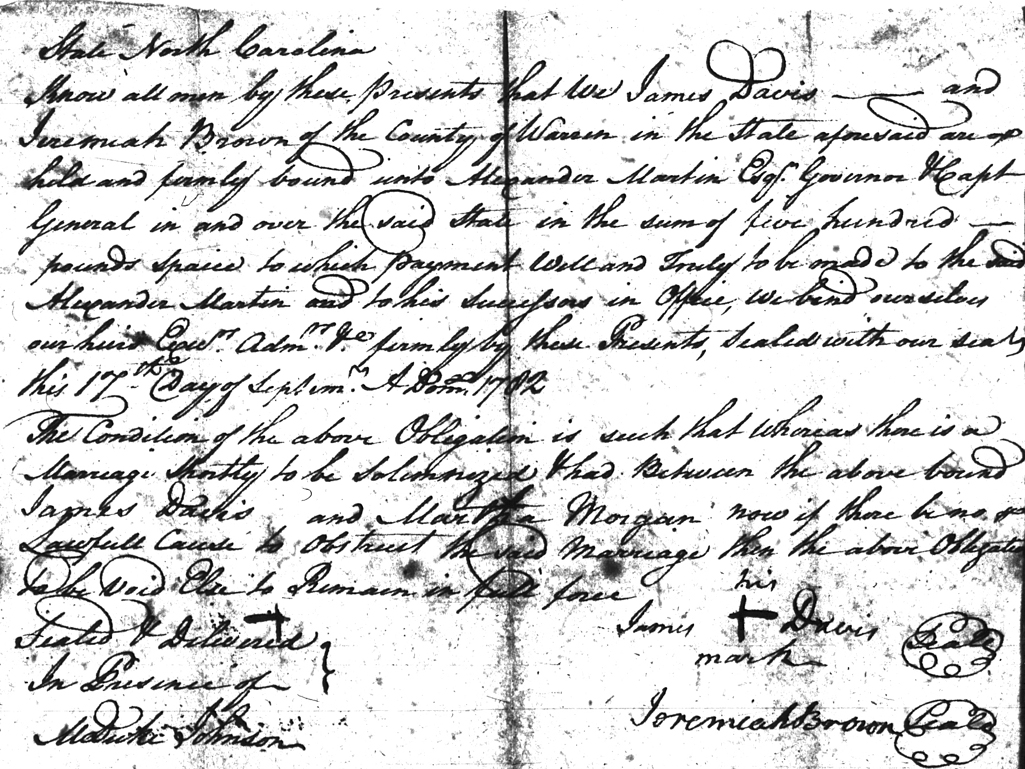 State North Carolina
Know all men by these Presents that We James Davis — and
Jeremiah Brown of the County of Warren in the State aforesaid are
held and firmly bound unto Alexander Martin Esqr. Governor & Capt
General in and over the said State in the sum of five hundred —
pounds Specie to which Payment Well and Truly to be made to the said
Alexander Martin and to his Successors in Office, We bind ourselves
our heirs Exetrs. Admrs. &c firmly by these Presents, Sealed with our seals
this 17th Day of Septemr. A Dom. 1782
The Condition of the above Obligation is such that Whereas there is a
Marriage Shortly to be Solemnized & had Between the above bound
James Davis and Martha Morgan now if there be no
Lawfull Cause to Obstruct the said Marriage then the above Obligation
to be Void Else to Remain in full force
Sealed & Delivered
In Presence of
MDuke Johnson
his
James + Davis Seal
mark
Jeremiah Brown Seal